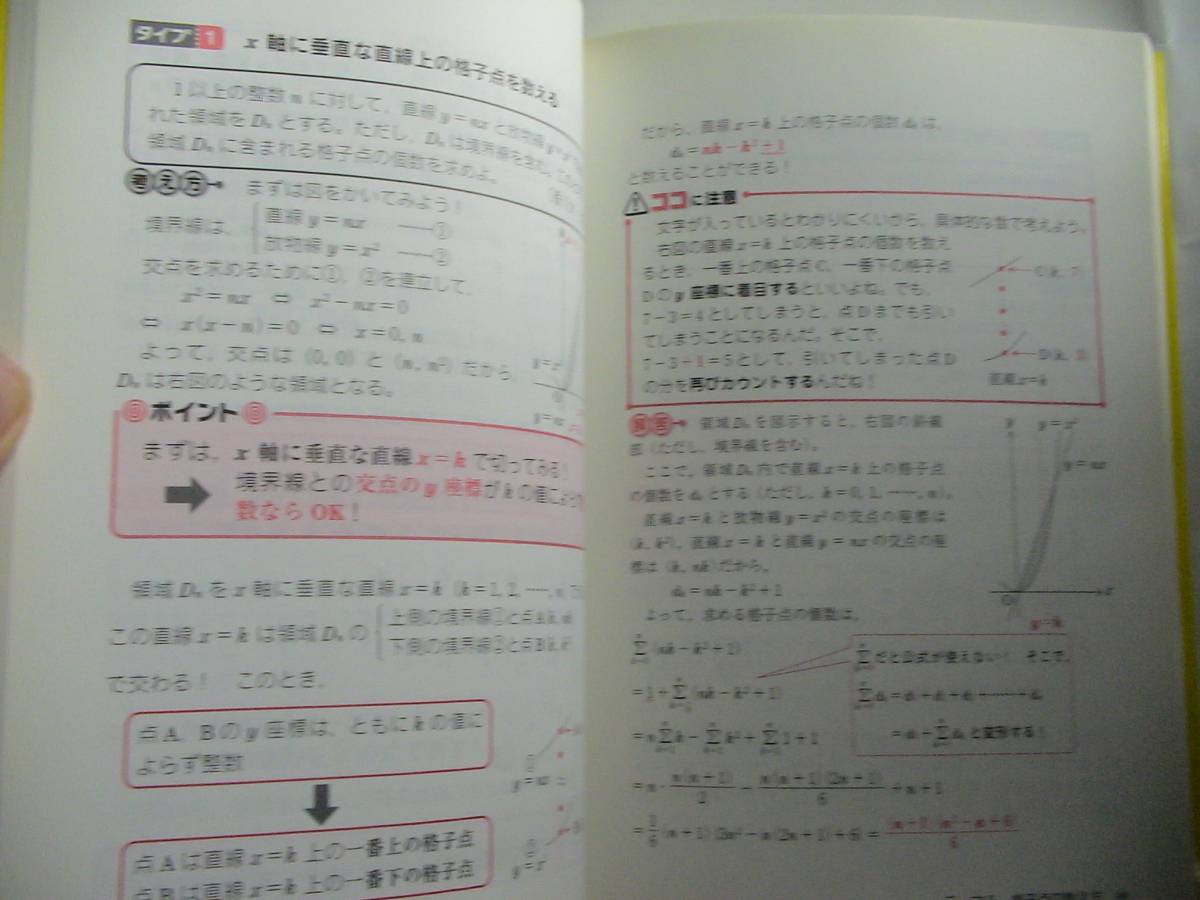 タイプ 1 x 軸に垂直な直線上の格子点を数える
1以上の整数 n に対して,直線 y=nx と放物線 y=x²
れた領域を Dₙ とする。ただし,Dₙ は境界線を含む。この
領域 Dₙ に含まれる格子点の個数を求めよ。
考え方 まずは図をかいてみよう!
境界線は,
直線 y=nx ——①
放物線 y=x² ——②
交点を求めるために①,②を連立して,
x²=nx ⇔ x²−nx=0
⇔ x(x−n)=0 ⇔ x=0, n
よって,交点は (0, 0) と (n, n²) だから,
Dₙ は右図のような領域となる。
y=x²
O
y=nx
ポイント
まずは,x 軸に垂直な直線 x=k で切ってみる!
境界線との交点の y 座標が k の値によらず
数なら OK!
領域 Dₙ を x 軸に垂直な直線 x=k (k=1, 2, ……, n)
この直線 x=k は領域 Dₙ の
上側の境界線①と点A
下側の境界線②と点B
で交わる! このとき,
点A,Bの y 座標は,ともに k の値に
よらず整数
① y=nx
点Aは直線 x=k 上の一番上の格子点
点Bは直線 x=k 上の一番下の格子点
② y=x²
だから,直線 x=k 上の格子点の個数 dₖ は,
dₖ=nk−k²+1
と数えることができる!
ココに注意
文字が入っているとわかりにくいから,具体的な数で考えよう。
右図の直線 x=k 上の格子点の個数を数え
るとき,一番上の格子点C,一番下の格子点
Dの y 座標に着目するといいよね。でも,
7−3=4としてしまうと,点Dまでも引い
てしまうことになるんだ。そこで,
7−3+1=5として,引いてしまった点D
の分を再びカウントするんだね!
C(k, 7)
D(k, 3)
直線 x=k
解答 領域 Dₙ を図示すると,右図の斜線
部(ただし,境界線を含む)。
ここで,領域 Dₙ 内で直線 x=k 上の格子点
の個数を dₖ とする(ただし,k=0, 1, ……, n)。
直線 x=k と放物線 y=x² の交点の座標は
(k, k²),直線 x=k と直線 y=nx の交点の座
標は (k, nk) だから,
dₖ=nk−k²+1
よって,求める格子点の個数は,
y
y=x²
y=nx
O
x
x=k
Σ(nk−k²+1)
=1+Σ(nk−k²+1)
=nΣk−Σk²+Σ1+1
=n·n(n+1)/2−n(n+1)(2n+1)/6+n+1
=1/6(n+1){3n²−n(2n+1)+6}=(n+1)(n²−n+6)/6
Σだと公式が使えない! そこで,
Σdₖ=d₀+d₁+d₂+……+dₙ
=d₀+Σdₖ と変形する!